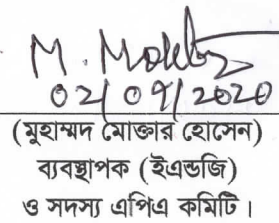 M. Mokter
02/09/2020
(মুহাম্মদ মোক্তার হোসেন)
ব্যবস্থাপক (ইএন্ডজি)
ও সদস্য এপিএ কমিটি।